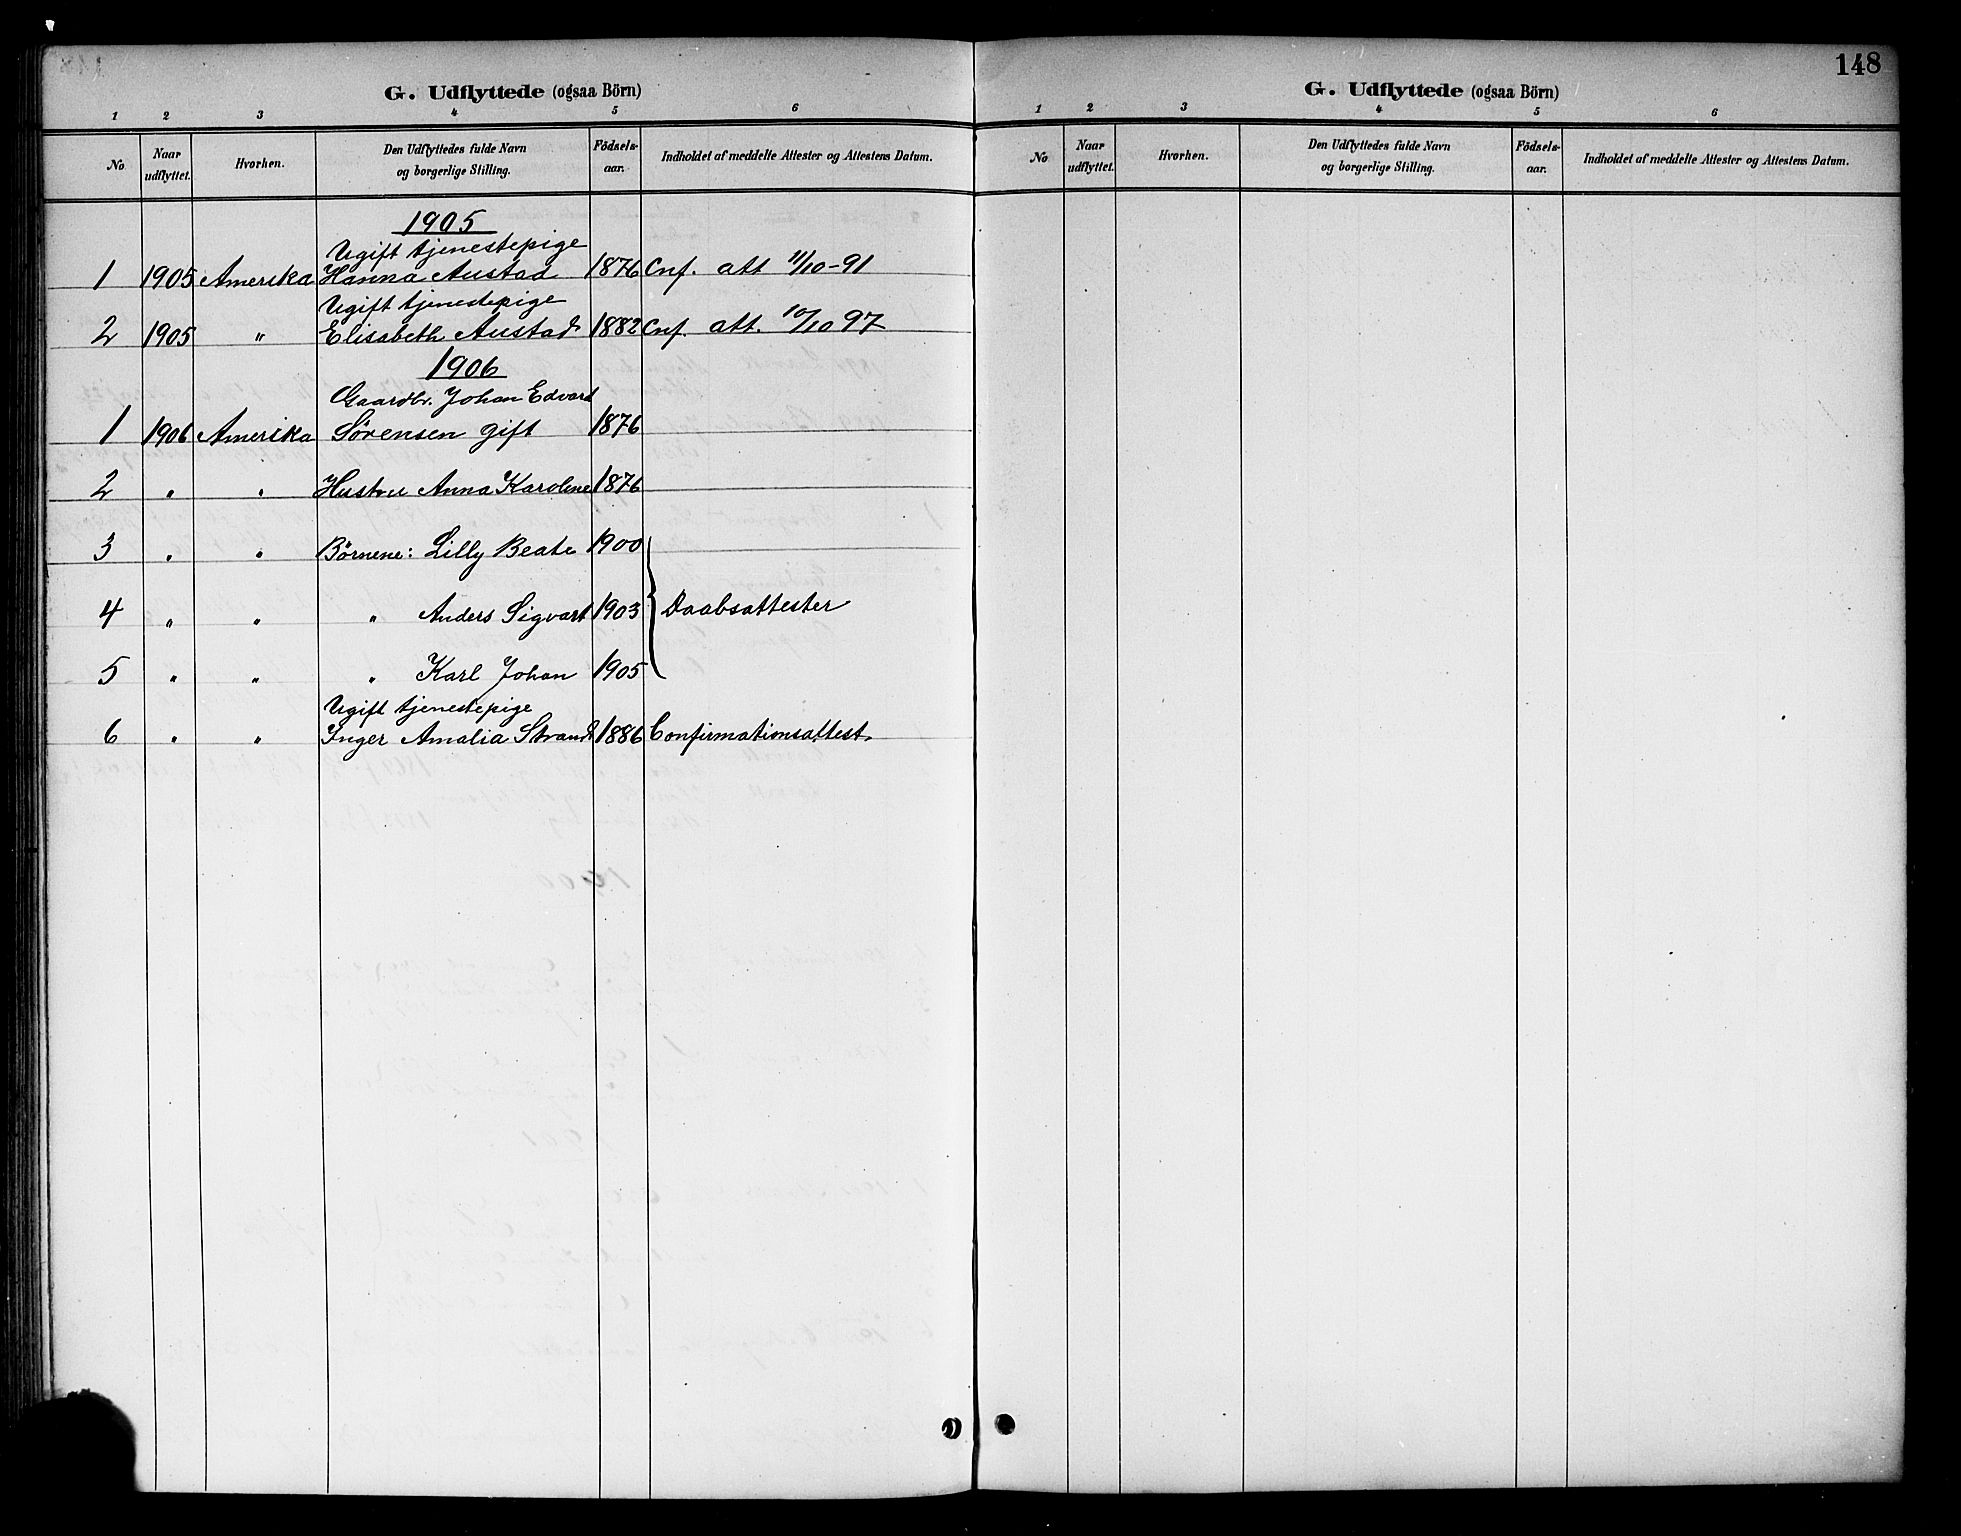 148
G. Udflyttede (ogsaa Börn)
1 2 3 4 5 6
No Naar udflyttet. Hvorhen. Den Udflyttedes fulde Navn og borgerlige Stilling. Födsels-aar. Indholdet af meddelte Attester og Attestens Datum.
1905
Ugift tjenestepige
1 1905 Amerika Hanna Austad 1876 Cnf. att 11/10-91
Ugift tjenestepige
2 1905 " Elisabeth Austad 1882 Cnf. att. 10/10 97
1906
Gaardbr. Johan Edvard
1 1906 Amerika Sørensen gift 1876
2 " " Hustru Anna Karoline 1876
3 " " Børnene: Lilly Beate 1900
4 " " " Anders Sigvart 1903 Daabsattester
5 " " " Karl Johan 1905
Ugift tjenestepige
6 " " Inger Amalia Strand 1886 Confirmationsattest.
G. Udflyttede (ogsaa Börn)
1 2 3 4 5 6
No Naar udflyttet. Hvorhen. Den Udflyttedes fulde Navn og borgerlige Stilling. Födsels-aar. Indholdet af meddelte Attester og Attestens Datum.